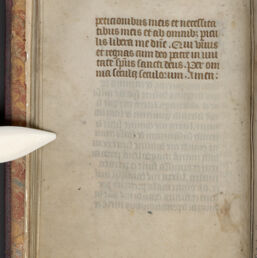 peticionibus meis et necessita
tibus meis et ab omnibȝ pcã
lis libera me dñe. Qui viuis
et regnas cum deo patre in uni
tate sp̃us sancti deus. Per om
nia secula seculorum. Amen.